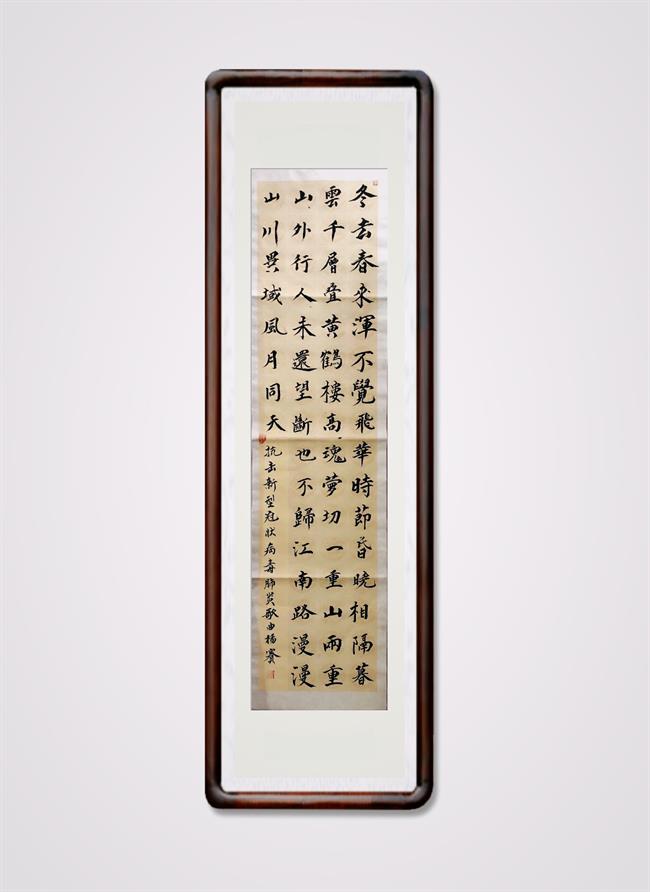 冬去春來渾不覺飛華時節昏曉相隔暮
雲千層叠黄鶴樓高魂夢切一重山兩重
山外行人未還望斷也不歸江南路漫漫
山川異域風月同天
抗击新型冠狀病毒肺炎歌曲楊賽